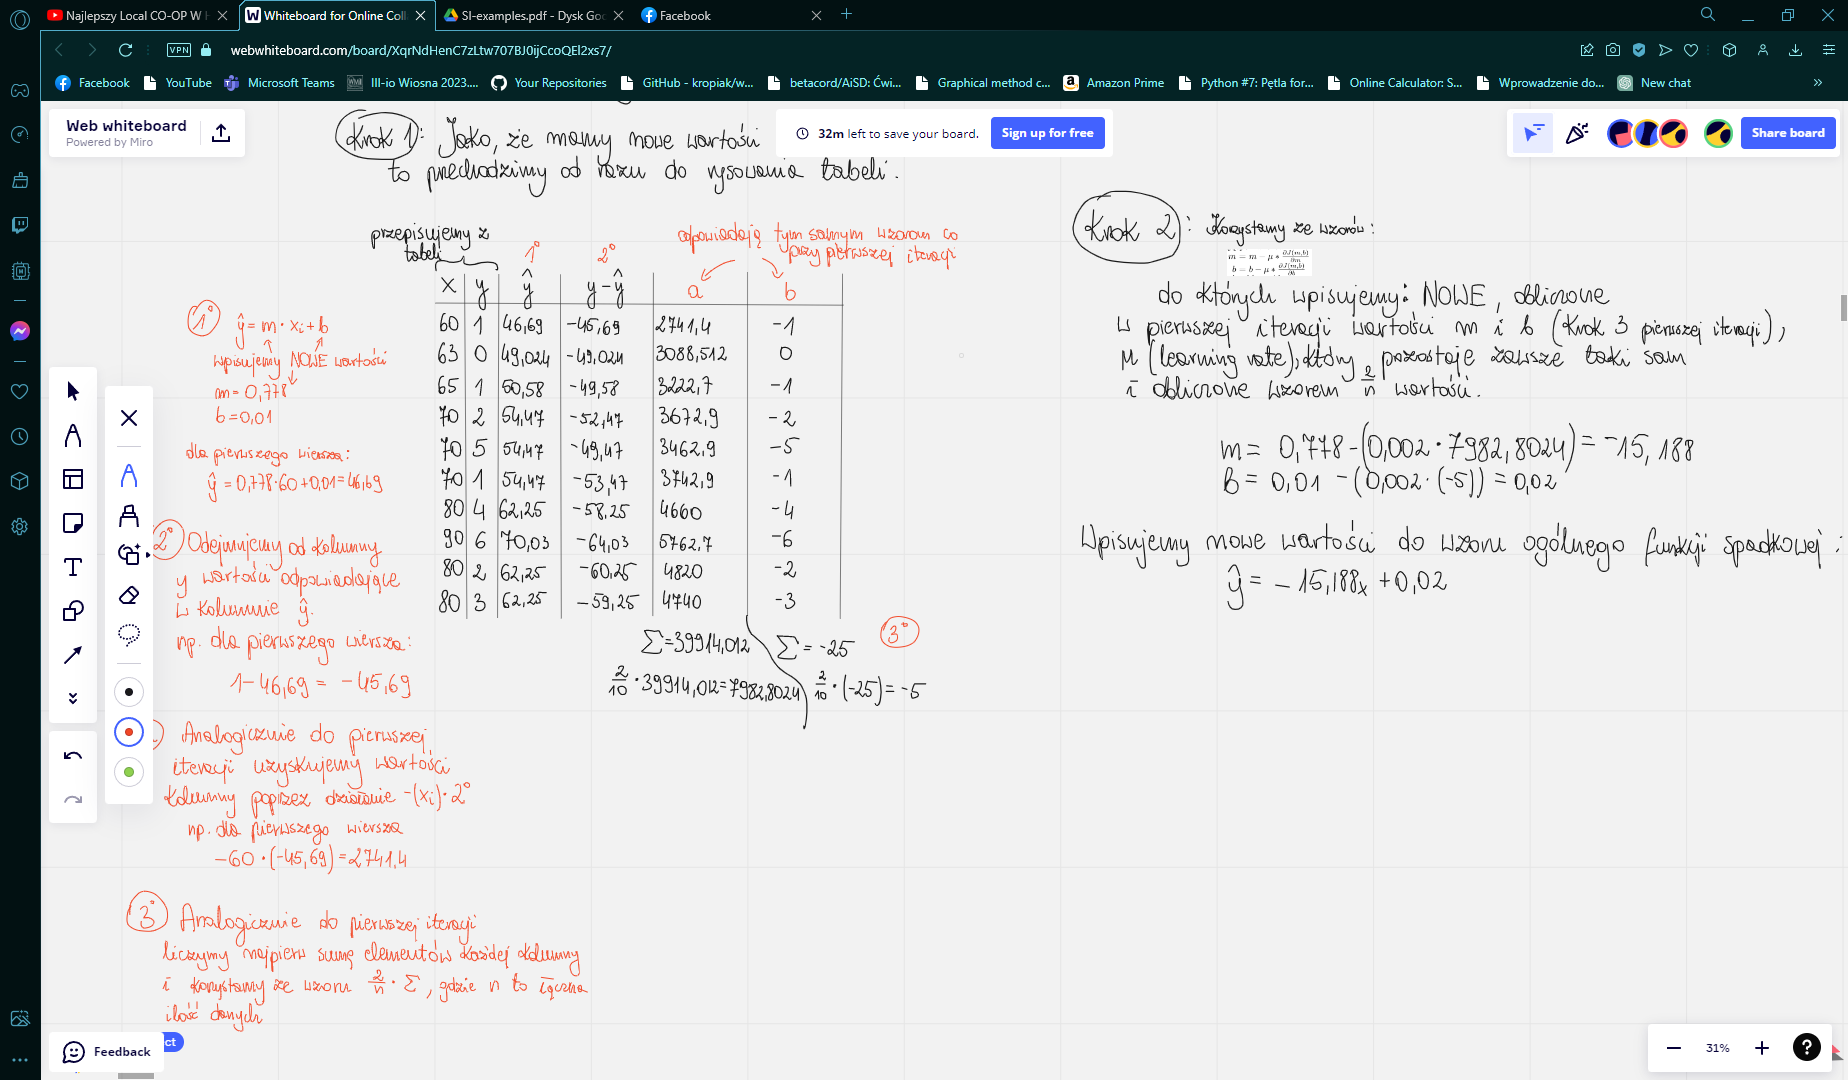 Najlepszy Local CO-OP W H
Whiteboard for Online Coll
SI-examples.pdf - Dysk Goo
Facebook
VPN
webwhiteboard.com/board/XqrNdHenC7zLtw707BJ0ijCcoQEl2xs7/
Facebook
YouTube
Microsoft Teams
III-io Wiosna 2023....
Your Repositories
GitHub - kropiak/w...
betacord/AiSD: Ćwi...
Graphical method c...
Amazon Prime
Python #7: Pętla for...
Online Calculator: S...
Wprowadzenie do...
New chat
Web whiteboard
Powered by Miro
32m left to save your board.
Sign up for free
Share board
Krok 1: Jako, że mamy nowe wartości
to przechodzimy od razu do rysowania tabeli.
przepisujemy z
tabeli
odpowiadają tym samym wzorom co
przy pierwszej iteracji
1° 2°
x y ŷ y-ŷ a b
60 1 46,69 -45,69 2741,4 -1
63 0 49,024 -49,024 3088,512 0
65 1 50,58 -49,58 3222,7 -1
70 2 54,47 -52,47 3672,9 -2
70 5 54,47 -49,47 3462,9 -5
70 1 54,47 -53,47 3742,9 -1
80 4 62,25 -58,25 4660 -4
90 6 70,03 -64,03 5762,7 -6
80 2 62,25 -60,25 4820 -2
80 3 62,25 -59,25 4740 -3
Σ=39914,012 Σ = -25
3°
2/10 · 39914,012=7982,8024 2/10 · (-25) = -5
1° ŷ = m · xi + b
wpisujemy NOWE wartości
m = 0,778
b = 0,01
dla pierwszego wiersza:
ŷ = 0,778·60+0,01=46,69
2° Odejmujemy od kolumny
y wartości odpowiadające
w kolumnie ŷ.
np. dla pierwszego wiersza:
1-46,69 = -45,69
Analogicznie do pierwszej
iteracji uzyskujemy wartości
kolumny poprzez działanie -(xi)·2°
np. dla pierwszego wiersza
-60·(-45,69)=2741,4
3° Analogicznie do pierwszej iteracji
liczymy najpierw sumę elementów każdej kolumny
i korzystamy ze wzoru 2/n · Σ, gdzie n to łączna
ilość danych
Krok 2: Korzystamy ze wzorów:
m = m − μ * ∂J(m,b)/∂m
b = b − μ * ∂J(m,b)/∂b
do których wpisujemy: NOWE, obliczone
w pierwszej iteracji wartości m i b (Krok 3 pierwszej iteracji),
μ (learning rate), który pozostaje zawsze taki sam
i obliczone wzorem 2/n wartości.
m = 0,778-(0,002·7982,8024) = -15,188
b = 0,01 -(0,002·(-5)) = 0,02
Wpisujemy nowe wartości do wzoru ogólnego funkcji spadkowej:
ŷ = -15,188x +0,02
Feedback
ct
31%